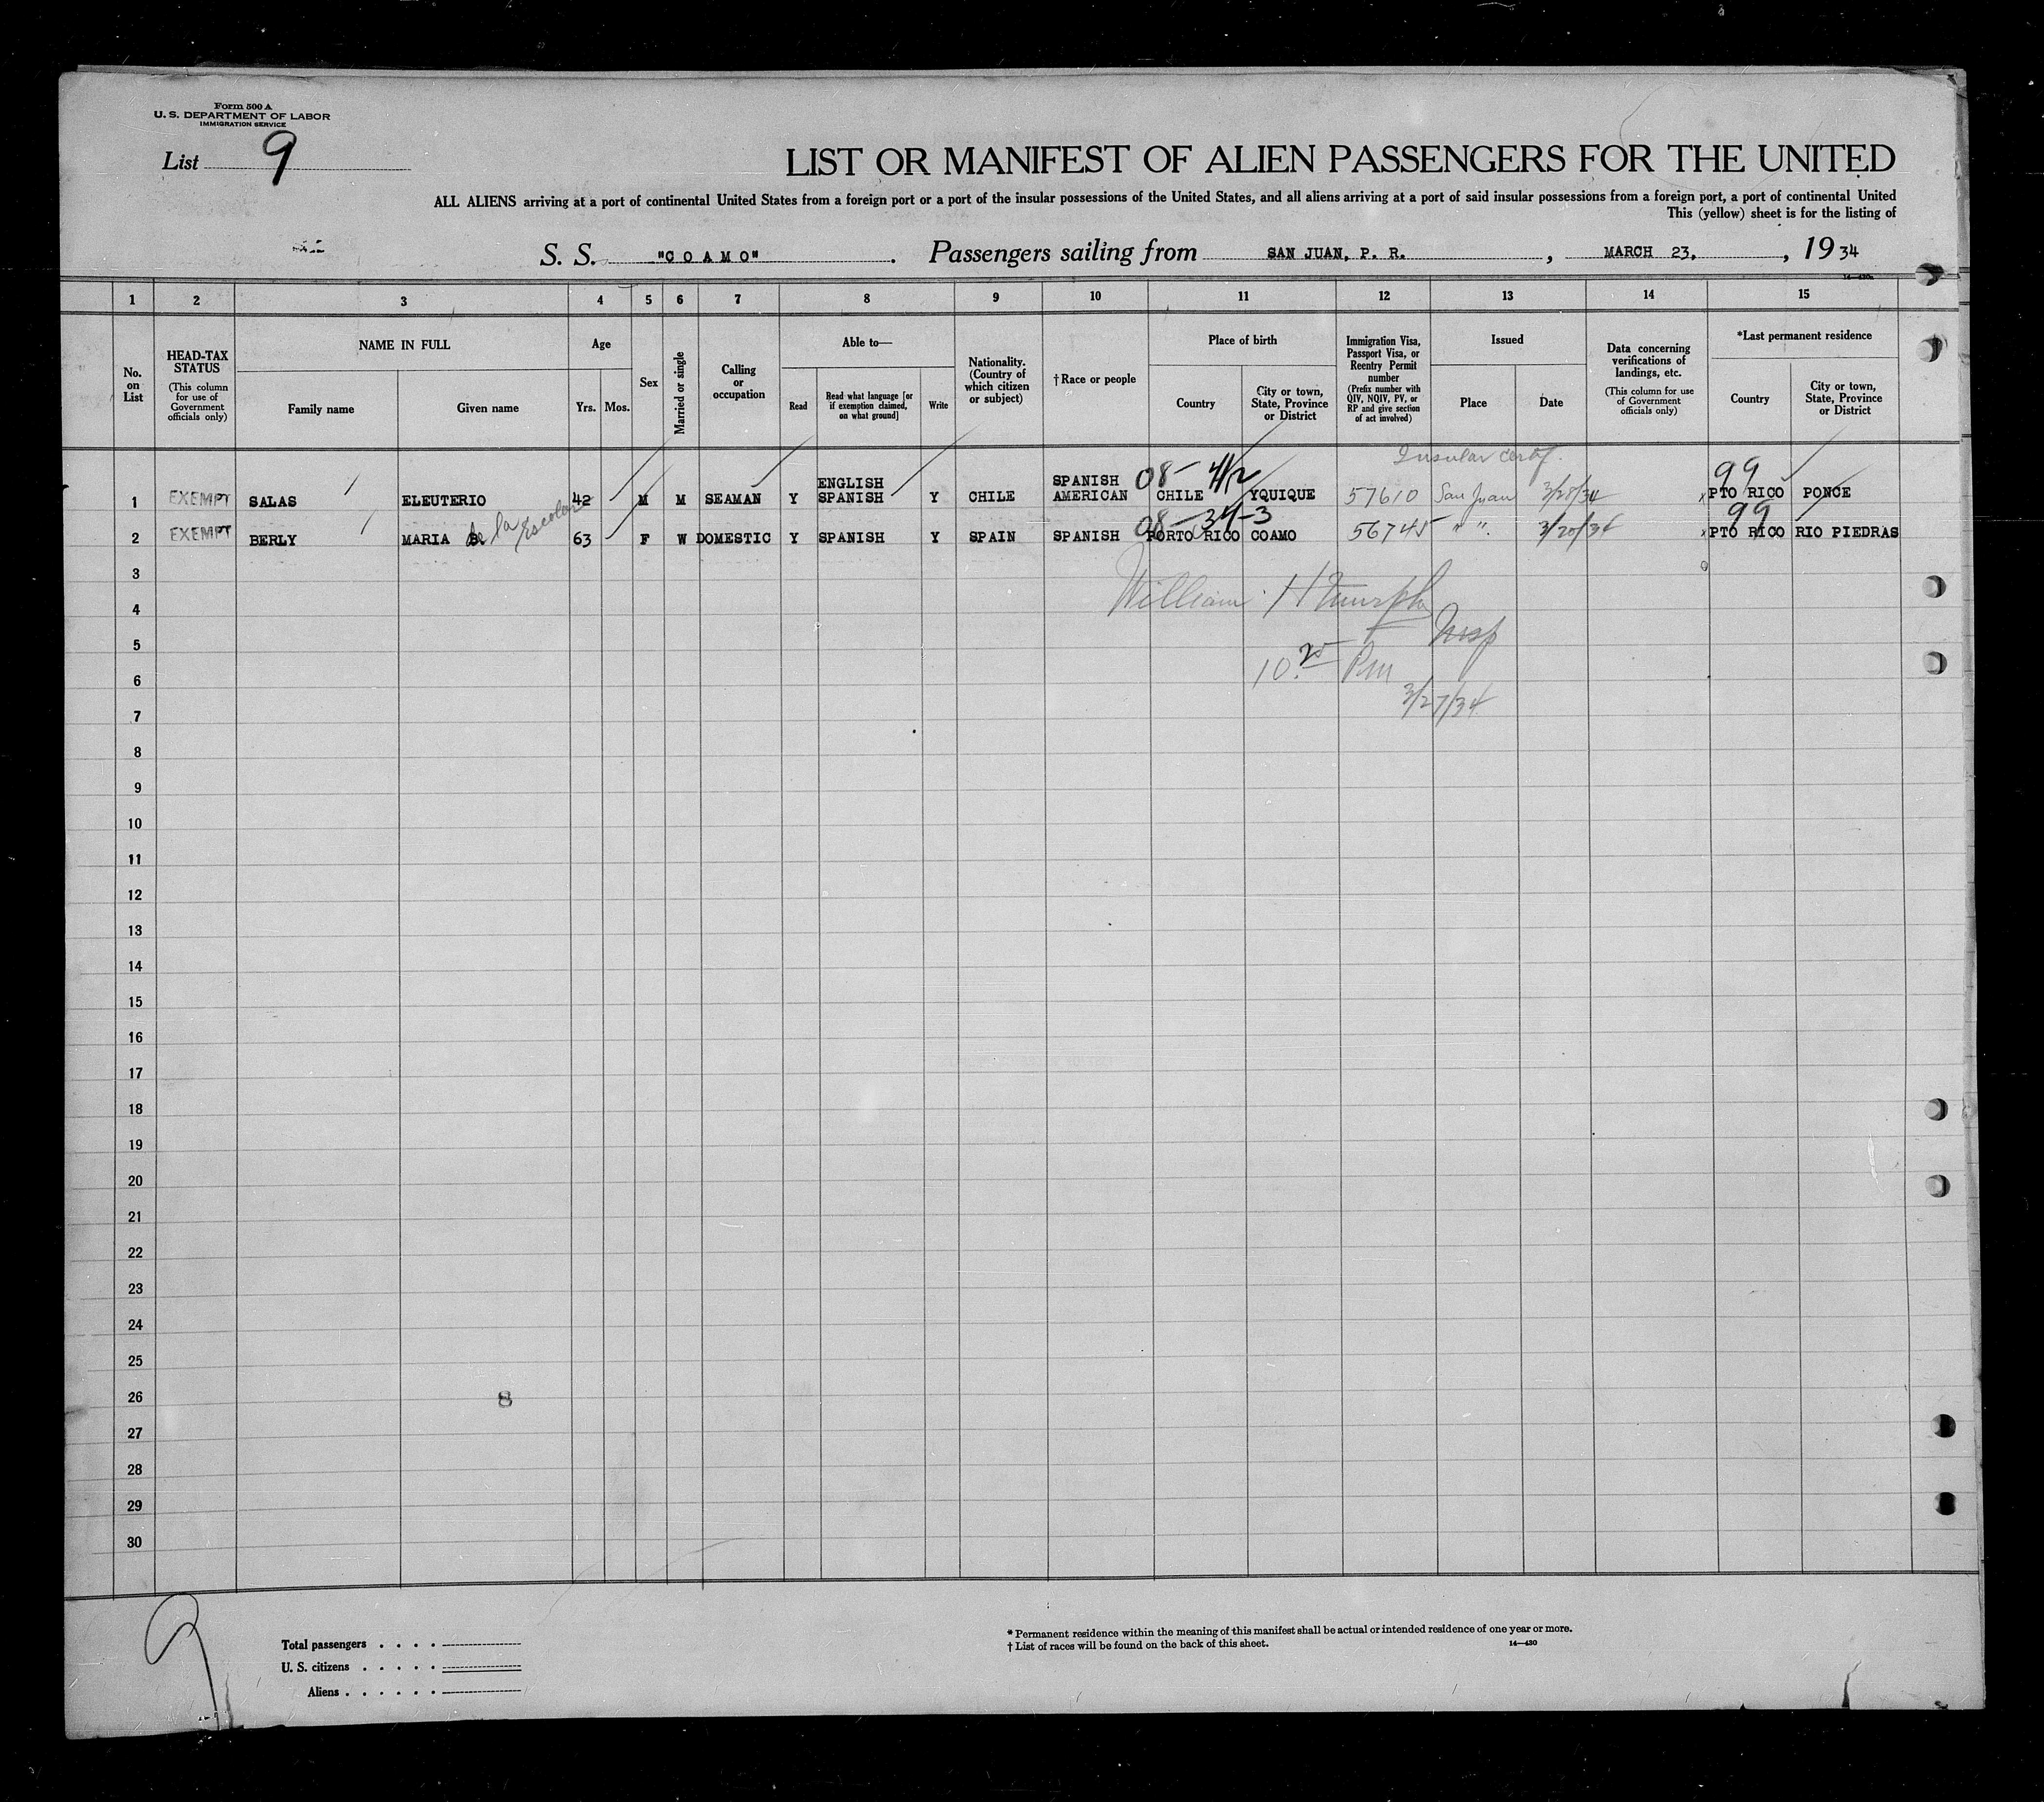 Form 500 A
U. S. DEPARTMENT OF LABOR
IMMIGRATION SERVICE
List 9
LIST OR MANIFEST OF ALIEN PASSENGERS FOR THE UNITED
ALL ALIENS arriving at a port of continental United States from a foreign port or a port of the insular possessions of the United States, and all aliens arriving at a port of said insular possessions from a foreign port, a port of continental United
This (yellow) sheet is for the listing of
S. S. "COAMO". Passengers sailing from SAN JUAN, P. R., MARCH 23, , 1934
14—430a
1 2 3 4 5 6 7 8 9 10 11 12 13 14 15
No. on List
HEAD-TAX STATUS
(This column for use of Government officials only)
NAME IN FULL
Family name
Given name
Age
Yrs. Mos.
Sex
Married or single
Calling or occupation
Able to—
Read
Read what language [or if exemption claimed, on what ground]
Write
Nationality. (Country of which citizen or subject)
†Race or people
Place of birth
Country
City or town, State, Province or District
Immigration Visa, Passport Visa, or Reentry Permit number
(Prefix number with QIV, NQIV, PV, or RP and give section of act involved)
Issued
Place
Date
Data concerning verifications of landings, etc.
(This column for use of Government officials only)
*Last permanent residence
Country
City or town, State, Province or District
Insular Certf.
08- 4/2 99
1 EXEMPT SALAS ELEUTERIO 42 M M SEAMAN Y ENGLISH SPANISH Y CHILE SPANISH AMERICAN CHILE YQUIQUE 57610 San Juan 3/20/34 x PTO RICO PONCE
08-34-3 99
2 EXEMPT BERLY MARIA de la Escolar 63 F W DOMESTIC Y SPANISH Y SPAIN SPANISH PORTO RICO COAMO 56745 " ". 3/20/34 x PTO RICO RIO PIEDRAS
3
William H
4
Insp
5
10.25 Pm
6
3/27/34
7
8
9
10
11
12
13
14
15
16
17
18
19
20
21
22
23
24
25
26 8
27
28
29
30
9
Total passengers . . . .
U. S. citizens . . . . .
Aliens . . . . . .
* Permanent residence within the meaning of this manifest shall be actual or intended residence of one year or more.
† List of races will be found on the back of this sheet. 14—430